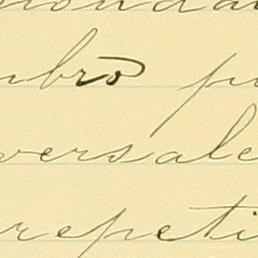 mbrō pu
versale
repeti